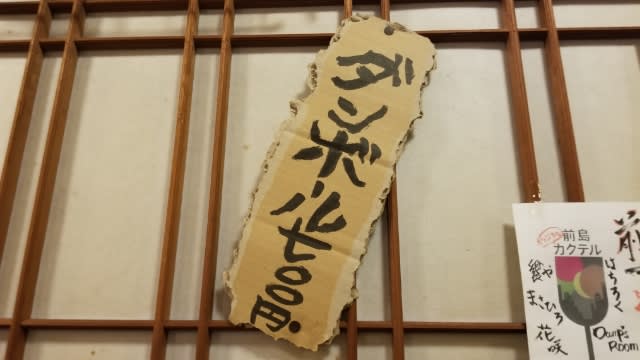 ダンボール七〇〇円.
前島
カクテル
はちろく
鬱や
まさひろ
花咲
Owp's
Room